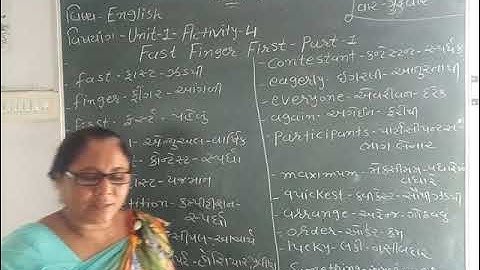 વિષય:- English
વાર:- ગુરુવાર
વિષયાંગ:- Unit-1- Activity-4
Fast Finger First - Part-1
fast - ફાસ્ટ - ઝડપી
finger - ફીંગર - આંગળી
First - ફર્સ્ટ - પહેલું
એન્યુઅલ - વાર્ષિક
કોન્ટેસ્ટ - સ્પર્ધા
યજમાન
tition - કમ્પીટીશન -
સ્પર્ધા
આચાર્ય
contestant - કન્ટેસ્ટન્ટ - સ્પર્ધક
eagerly - ઈગરલી - આતુરતાથી
everyone - એવરીવન - દરેક
again - અગેઈન - ફરીથી
Participants - પાર્ટીસીપન્ટસ -
ભાગ લેનાર
maximum - મેક્સીમમ - વધારેમાં
વધારે
quickest - ક્વીકેસ્ટ - સૌથી ઝડપી
arrange - અરેન્જ - ગોઠવવું
order - ઓર્ડર - ક્રમ
lucky - લકી - નસીબદાર
Something